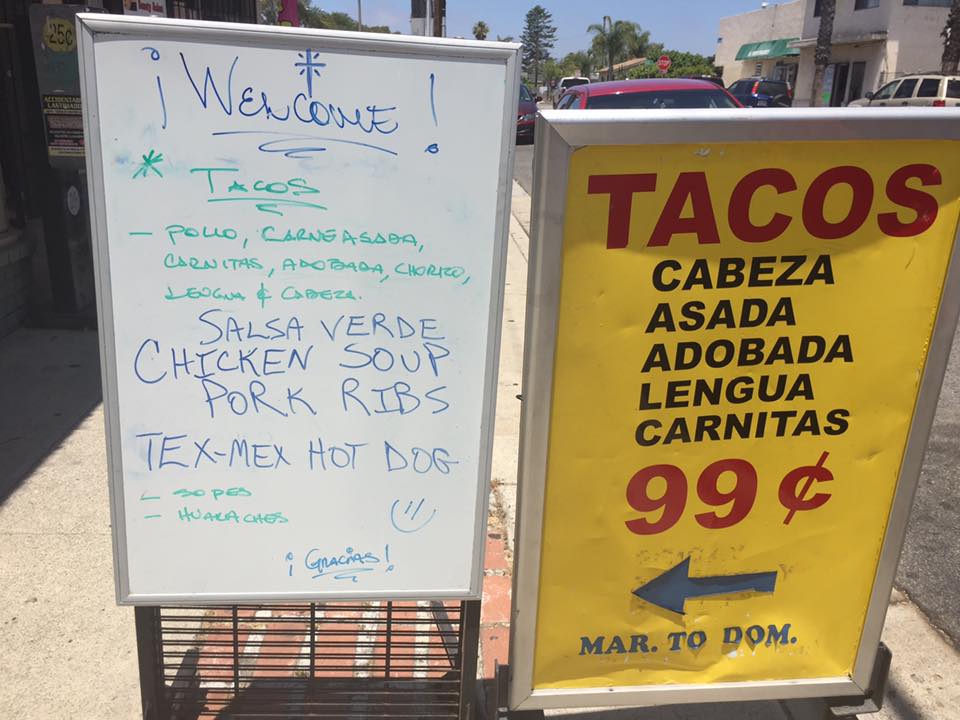 ¡ WELCOME !
TACOS
- POLLO, CARNE ASADA,
CARNITAS, ADOBADA, CHORIZO,
LENGUA & CABEZA.
SALSA VERDE
CHICKEN SOUP
PORK RIBS
TEX-MEX HOT DOG
- SOPES
- HUARACHES
¡ GRACIAS !
TACOS
CABEZA
ASADA
ADOBADA
LENGUA
CARNITAS
99¢
MAR. TO DOM.
25¢
STOP